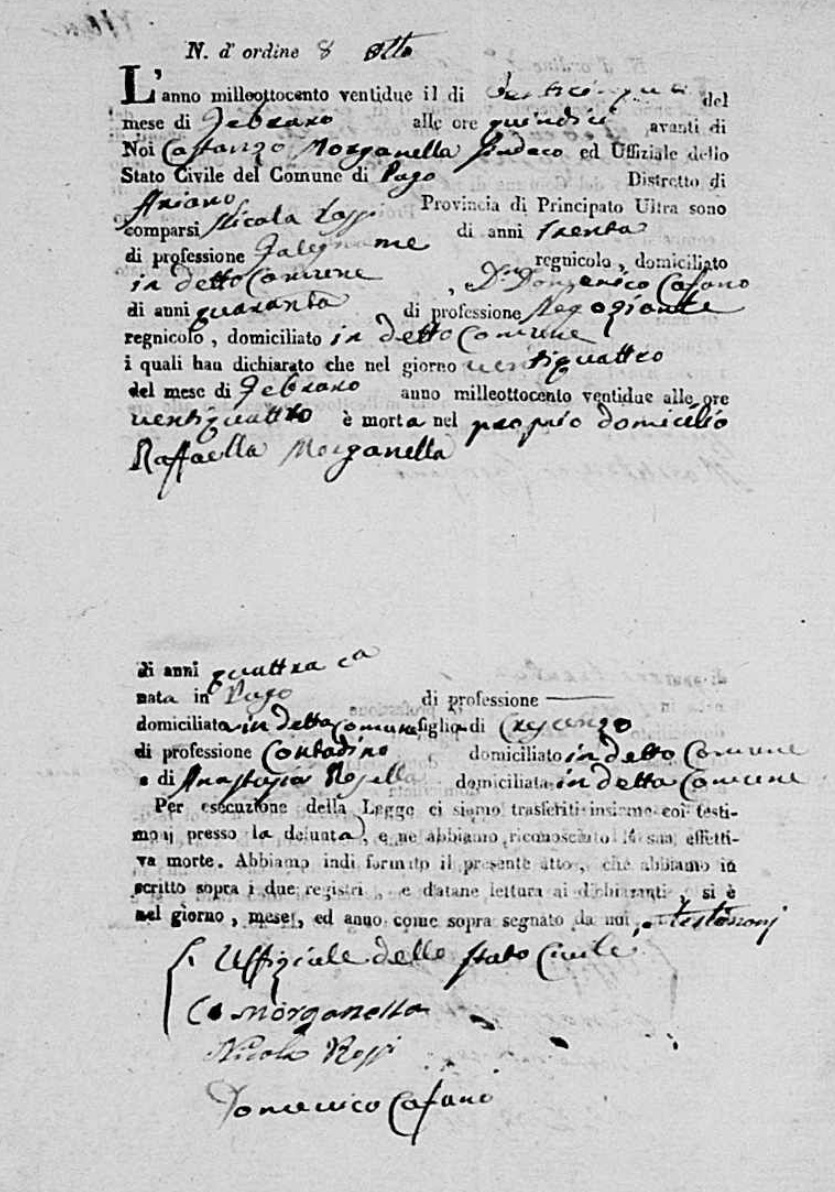 N. d' ordine 8 otto
L' anno milleottocento ventidue il di venticinque del
mese di Febraro alle ore quindici avanti di
Noi Costanzo Morganella Sindaco ed Uffiziale dello
Stato Civile del Comune di Pago Distretto di
Ariano Provincia di Principato Ultra sono
comparsi Nicola Rossi di anni trenta
di professione Falegname regnicolo, domiciliato
in detto Comune, Dn. Domenico Cafano
di anni quaranta di professione Negoziante
regnicolo, domiciliato in detto Comune
i quali han dichiarato che nel giorno ventiquattro
del mese di Febraro anno milleottocento ventidue alle ore
ventiquattro è morta nel proprio domicilio
Raffaella Morganella
di anni quattro ca
nata in Pago di professione —
domiciliata in detta Comune figlia di Crescenzo
di professione Contadino domiciliato in detto Comune
e di Anastasia Rosella domiciliata in detta Comune
Per esecuzione della Legge ci siamo trasferiti insieme coi testi-
monj presso la defunta, e ne abbiamo riconosciuto la sua effetti-
va morte. Abbiamo indi formato il presente atto, che abbiamo in
scritto sopra i due registri, e datane lettura ai dichiaranti, si è
nel giorno, mese, ed anno come sopra segnato da noi, e testimonj
L' Uffiziale dello Stato Civile
Co Morganella
Nicola Rossi
Domenico Cafano